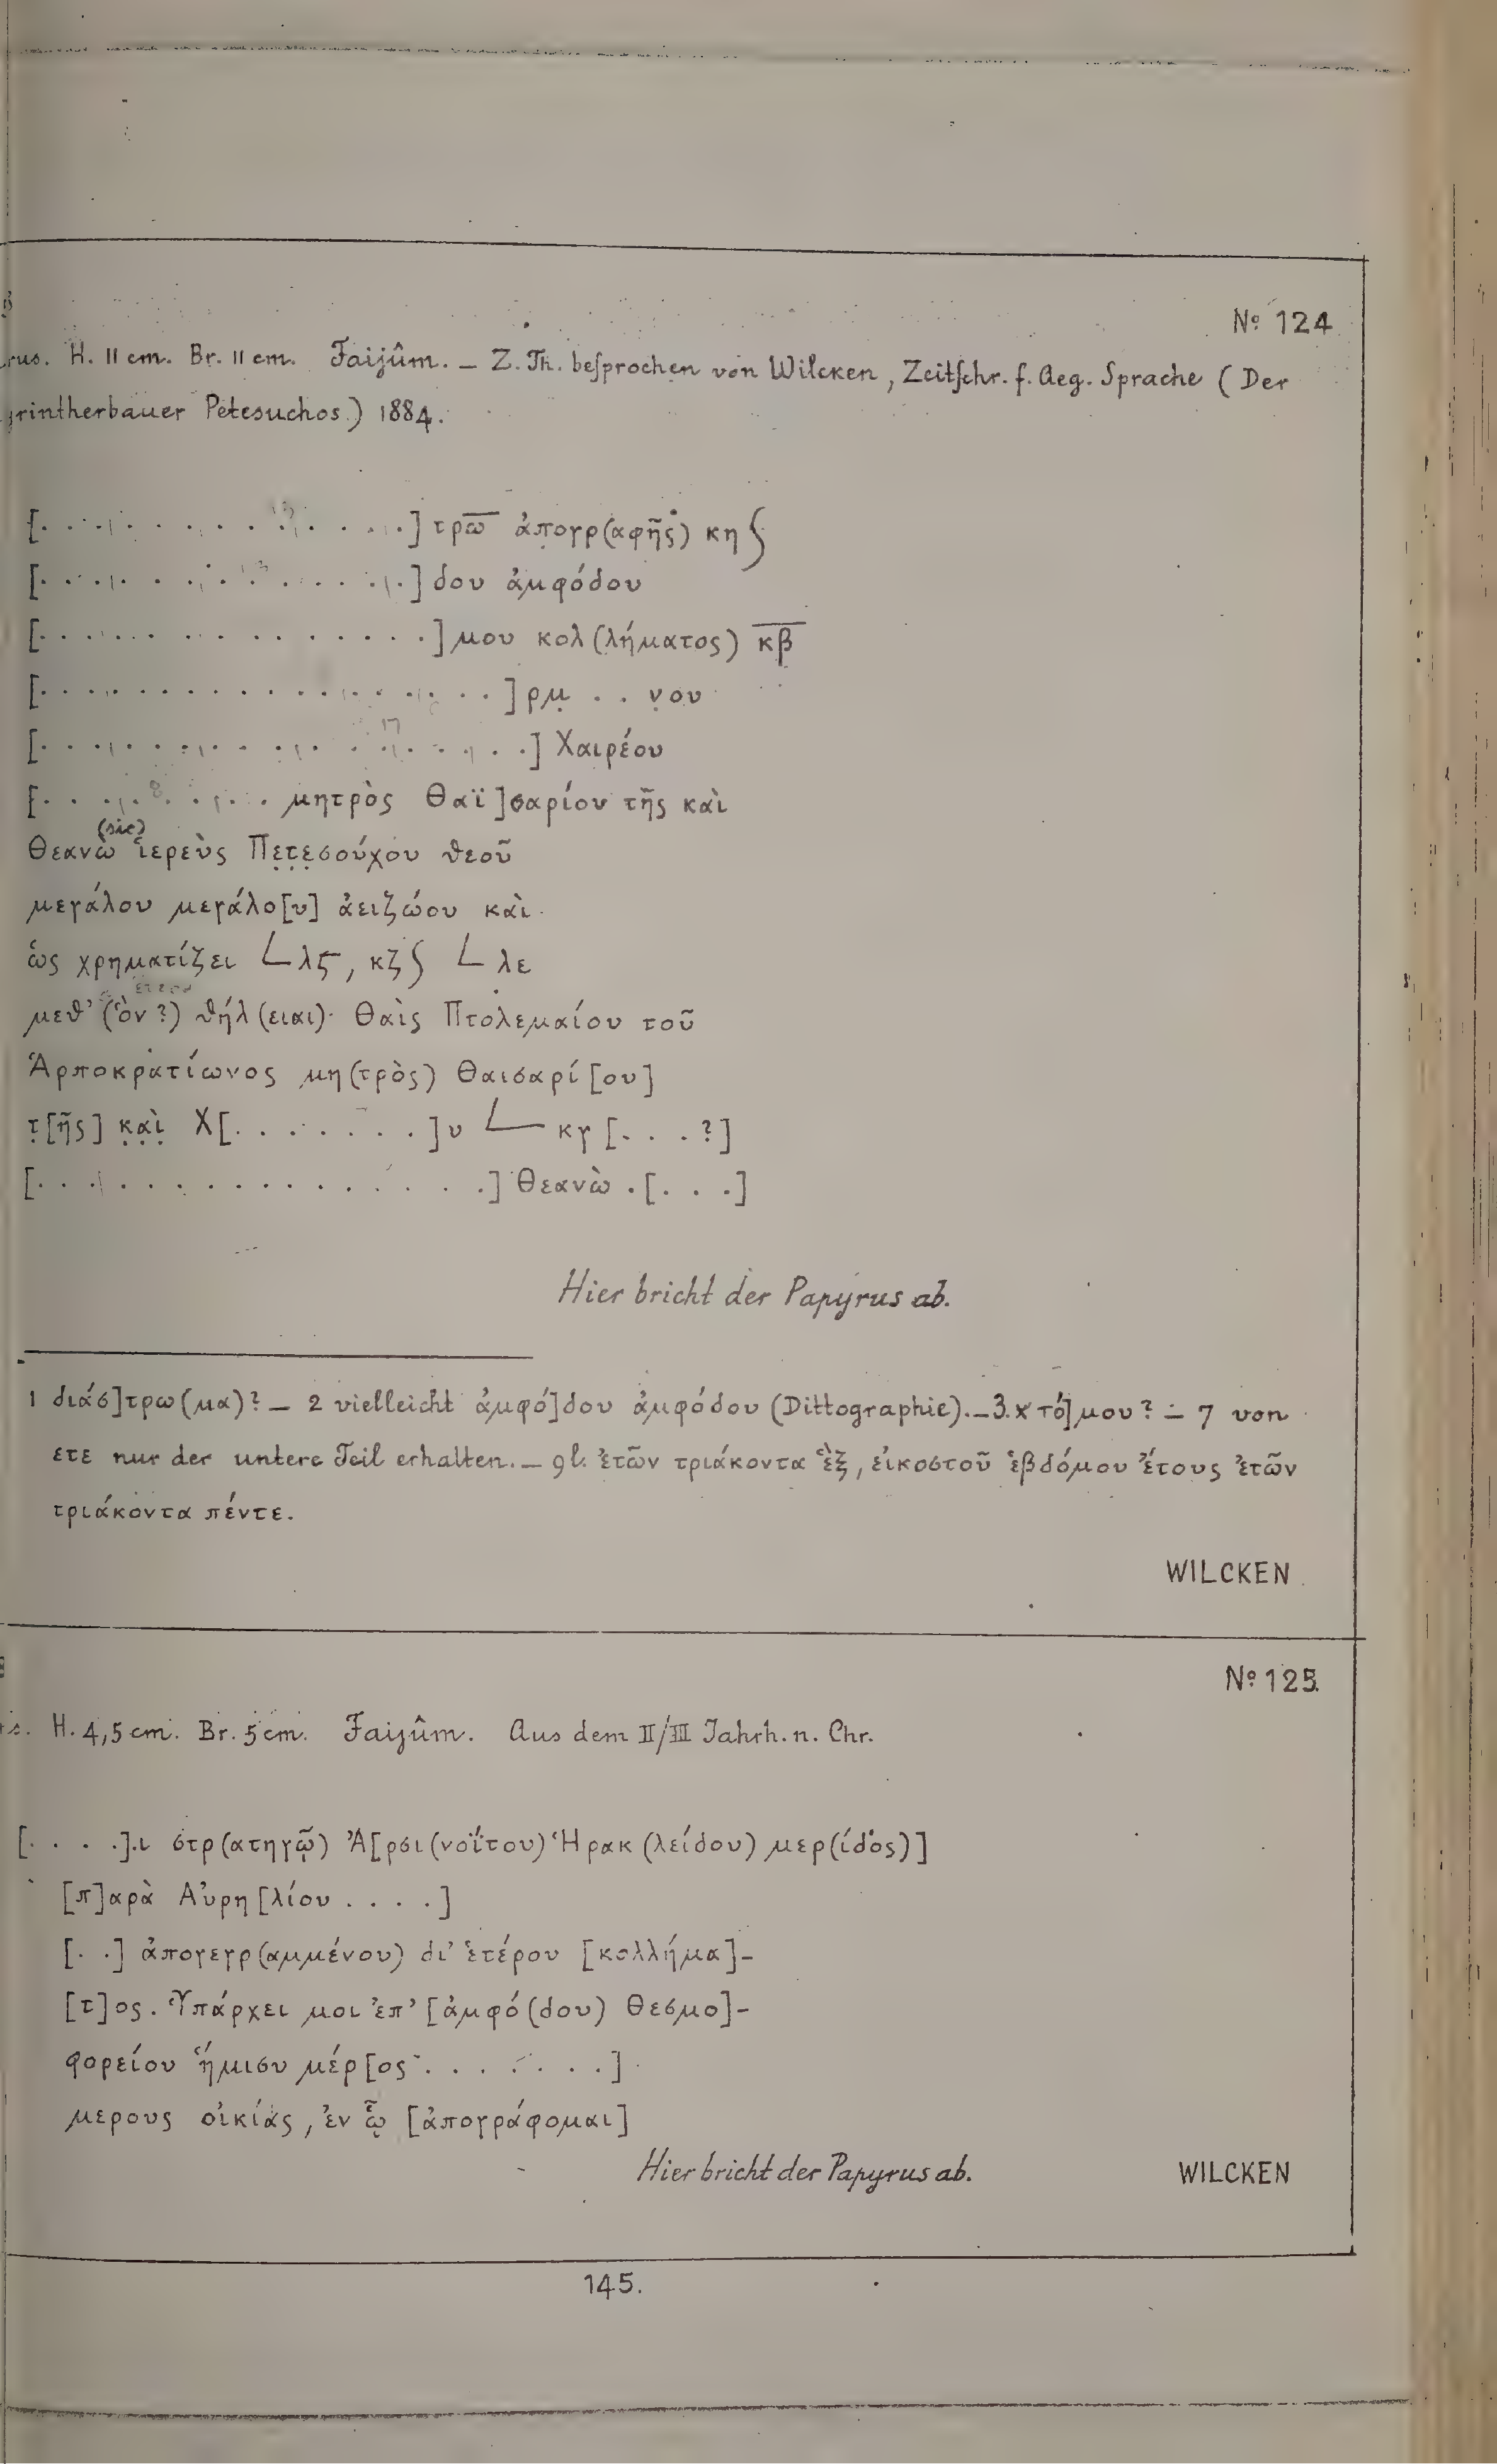 Nº 124
H. 11 cm. Br. 11 cm. Faijûm. – Z. Th. beſprochen von Wilcken, Zeitſchr. f. Aeg. Sprache (Der
rintherbauer Petesuchos) 1884.
[. . . . . . . . . . . . .] τρω̅ ἀπογρ(αφῆς) κη ʃ
[. . . . . . . . . . . . .] δου ἀμφόδου
[. . . . . . . . . . . . . .] μου κολ(λήματος) κ̅β̅
[. . . . . . . . . . . . . . . .] ρμ̣ . . ν̣ου
[. . . . . . . . . . . . . . . . .] Χαιρέου
[. . . . . . . . μητρὸς Θαϊ]σαρίου τῆς καὶ
(sic)
Θεανὼ ἱερεὺς Π̣ε̣τ̣ε̣σούχου θεοῦ
μεγάλου μεγάλο[υ] ἀειζώου καὶ
ὡς χρηματίζει ∟λϛ, κζ ʃ ∟ λε
μεθ’ (ὃν ?) θήλ(ειαι)· Θαὶς Πτολεμαίου τοῦ
Ἁρποκρατίωνος μη(τρὸς) Θαισαρί[ου]
τ̣[ῆς] κ̣α̣ὶ̣ Χ[. . . . . . .]υ ∟ κγ [. . . ?]
[. . . . . . . . . . . . . . .] Θεανὼ . [. . .]
Hier bricht der Papyrus ab.
1 διάσ]τρω(μα)? – 2 vielleicht ἀμφό]δου ἀμφόδου (Dittographie). – 3. τό]μου ? – 7 von
ετε nur der untere Teil erhalten. – 9 l. ἐτῶν τριάκοντα ἓξ, εἰκοστοῦ ἑβδόμου ἔτους ἐτῶν
τριάκοντα πέντε.
WILCKEN
Nº 125
H. 4,5 cm. Br. 5 cm. Faijûm. Aus dem II/III Jahrh. n. Chr.
[. . . .].ι στρ(ατηγῷ) Ἀ[ρσι(νοΐτου) Ἡρακ(λείδου) μερ(ίδος)]
[π]αρὰ Αὐρη[λίου . . . .]
[. .] ἀπογεγρ(αμμένου) δι’ ἑτέρου [κολλήμα]-
[τ]ος. Ὑπάρχει μοι ἐπ’ [ἀμφό(δου) Θεσμο]-
φορείου ἥμισυ μέρ[ος . . . . . . .]
μερους οἰκίας, ἐν ᾧ [ἀπογράφομαι]
Hier bricht der Papyrus ab.
WILCKEN
145.